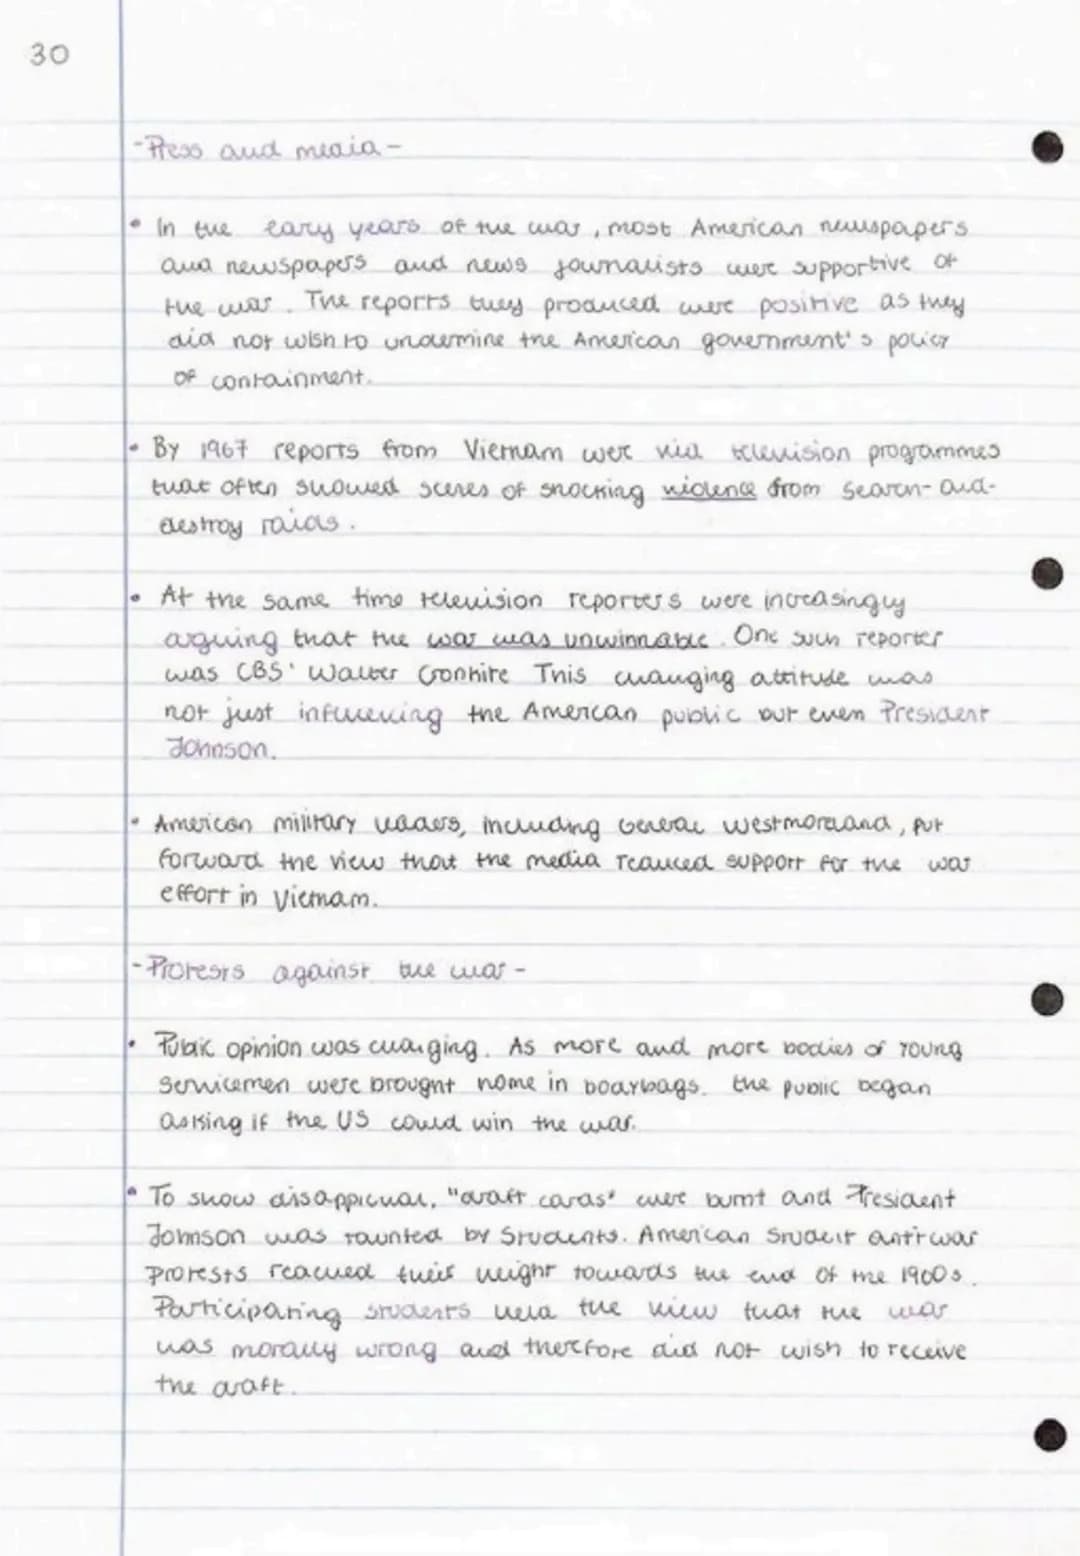 30
-Press and media-
• In the eary years of the war, most American newspapers
and newspapers and news journalists were supportive of
the war. The reports they produced were positive as they
did not wish to undermine the American government's policy
of containment.
• By 1967 reports from Vietnam were via television programmes
that often showed scenes of shocking violence from search-and-
destroy raids.
• At the same time television reporters were increasingly
arguing that the war was unwinnable. One such reporter
was CBS' Walter Cronkite This changing attitude was
not just influencing the American public but even President
Johnson.
• American military leaders, including General Westmoreland, put
forward the view that the media reduced support for the war
effort in Vietnam.
-Protests against the war-
• Public opinion was changing. As more and more bodies of young
servicemen were brought home in bodybags. the public began
asking if the US could win the war.
• To show disapproval, "draft cards" were burnt and President
Johnson was taunted by students. American student antiwar
protests reached their height towards the end of the 1960s.
Participating students held the view that the war
was morally wrong and therefore did not wish to receive
the draft.